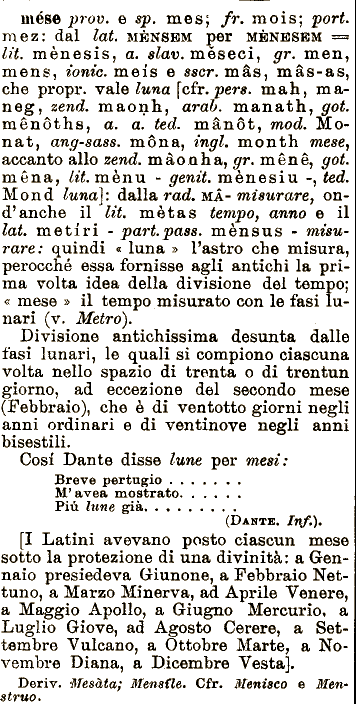 mése prov. e sp. mes; fr. mois; port.
mez: dal lat. MÈNSEM per MÈNESEM =
lit. mènesis, a. slav. mèseci, gr. men,
mens, ionic. meis e sscr. mâs, mâs-as,
che propr. vale luna [cfr. pers. mah, ma-
neg, zend. maoṇh, arab. manath, got.
mênôths, a. a. ted. mânôt, mod. Mo-
nat, ang-sass. môna, ingl. month mese,
accanto allo zend. mâoṇha, gr. mênê, got.
mêna, lit. mènu - genit. mènesiu -, ted.
Mond luna]: dalla rad. MÂ- misurare, on-
d'anche il lit. mètas tempo, anno e il
lat. metíri - part. pass. mènsus - misu-
rare: quindi « luna » l'astro che misura,
perocché essa fornisse agli antichi la pri-
ma volta idea della divisione del tempo;
« mese » il tempo misurato con le fasi lu-
nari (v. Metro).
Divisione antichissima desunta dalle
fasi lunari, le quali si compiono ciascuna
volta nello spazio di trenta o di trentun
giorno, ad eccezione del secondo mese
(Febbraio), che è di ventotto giorni negli
anni ordinari e di ventinove negli anni
bisestili.
Cosí Dante disse lune per mesi:
Breve pertugio . . . . . . .
M'avea mostrato. . . . . .
Piú lune già. . . . . . . . .
(DANTE. Inf.).
[I Latini avevano posto ciascun mese
sotto la protezione di una divinità: a Gen-
naio presiedeva Giunone, a Febbraio Net-
tuno, a Marzo Minerva, ad Aprile Venere,
a Maggio Apollo, a Giugno Mercurio, a
Luglio Giove, ad Agosto Cerere, a Set-
tembre Vulcano, a Ottobre Marte, a No-
vembre Diana, a Dicembre Vesta].
Deriv. Mesàta; Mensíle. Cfr. Menisco e Men-
struo.